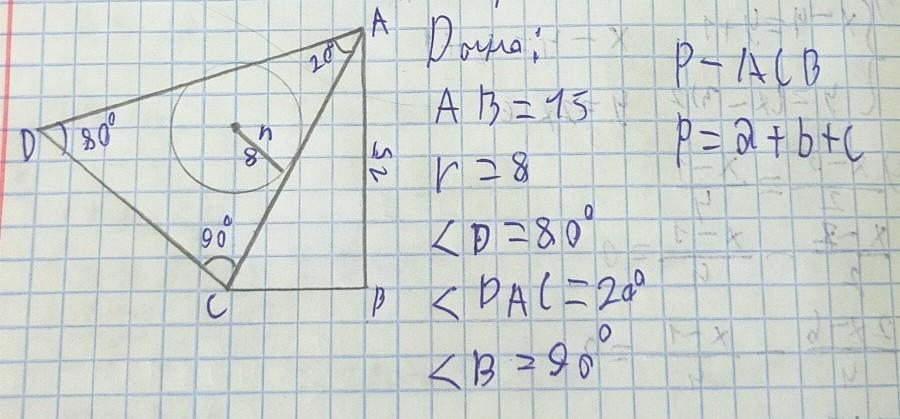 A
20
D
80°
r
8
90°
C
B
AB = 15
r = 8
<D = 80°
<DAC = 20°
<B = 90°
P - ACB
P = a + b + c